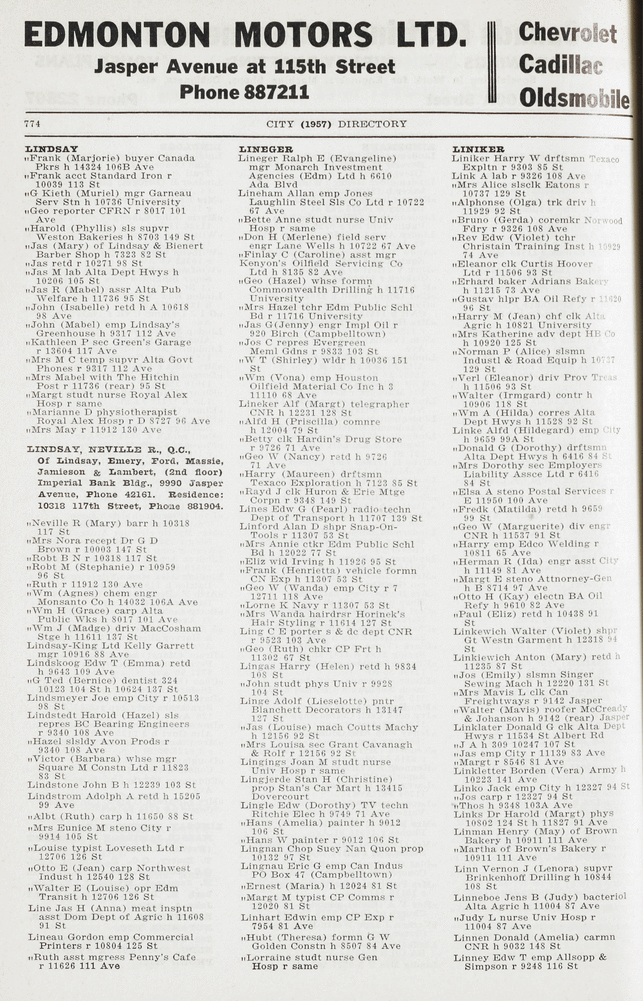 EDMONTON MOTORS LTD.
Jasper Avenue at 115th Street
Phone 887211
Chevrolet
Cadillac
Oldsmobile
774
CITY (1957) DIRECTORY
LINDSAY
"Frank (Marjorie) buyer Canada
Pkrs h 14324 106B Ave
"Frank acct Standard Iron r
10039 113 St
"G Kieth (Muriel) mgr Garneau
Serv Stn h 10736 University
"Geo reporter CFRN r 8017 101
Ave
"Harold (Phyllis) sls supvr
Weston Bakeries h 8703 149 St
"Jas (Mary) of Lindsay & Bienert
Barber Shop h 7323 82 St
"Jas retd r 10271 98 St
"Jas M lab Alta Dept Hwys h
10206 105 St
"Jas R (Mabel) assr Alta Pub
Welfare h 11736 95 St
"John (Isabelle) retd h A 10618
98 Ave
"John (Mabel) emp Lindsay's
Greenhouse h 9317 112 Ave
"Kathleen P sec Green's Garage
r 13604 117 Ave
"Mrs M C temp supvr Alta Govt
Phones r 9317 112 Ave
"Mrs Mabel with The Hitchin
Post r 11736 (rear) 95 St
"Margt studt nurse Royal Alex
Hosp r same
"Marianne D physiotherapist
Royal Alex Hosp r D 8727 96 Ave
"Mrs May r 11912 130 Ave
LINDSAY, NEVILLE R., Q.C.,
Of Lindsay, Emery, Ford, Massie,
Jamieson & Lambert, (2nd floor)
Imperial Bank Bldg., 9990 Jasper
Avenue, Phone 42161. Residence:
10318 117th Street, Phone 881904.
"Neville R (Mary) barr h 10318
117 St
"Mrs Nora recept Dr G D
Brown r 10003 147 St
"Robt B N r 10318 117 St
"Robt M (Stephanie) r 10959
96 St
"Ruth r 11912 130 Ave
"Wm (Agnes) chem engr
Monsanto Co h 14032 106A Ave
"Wm H (Grace) carp Alta
Public Wks h 8017 101 Ave
"Wm J (Madge) driv MacCosham
Stge h 11611 137 St
Lindsay-King Ltd Kelly Garrett
mgr 10916 88 Ave
Lindskoog Edw T (Emma) retd
h 9643 109 Ave
"G Ted (Bernice) dentist 324
10123 104 St h 10624 137 St
Lindsmeyer Joe emp City r 10513
98 St
Lindstedt Harold (Hazel) sls
repres BC Bearing Engineers
r 9340 108 Ave
"Hazel slsldy Avon Prods r
9340 108 Ave
"Victor (Barbara) whse mgr
Square M Constn Ltd r 11823
83 St
Lindstone John B h 12239 103 St
Lindstrom Adolph A retd h 15205
99 Ave
"Albt (Ruth) carp h 11650 88 St
"Mrs Eunice M steno City r
9914 105 St
"Louise typist Loveseth Ltd r
12706 126 St
"Otto E (Jean) carp Northwest
Indust h 12540 128 St
"Walter E (Louise) opr Edm
Transit h 12706 126 St
Line Jas H (Anna) meat insptn
asst Dom Dept of Agric h 11608
91 St
Lineau Gordon emp Commercial
Printers r 10804 125 St
"Ruth asst mgress Penny's Cafe
r 11626 111 Ave
LINEGER
Lineger Ralph E (Evangeline)
mgr Monarch Investment
Agencies (Edm) Ltd h 6610
Ada Blvd
Lineham Allan emp Jones
Laughlin Steel Sls Co Ltd r 10722
67 Ave
"Bette Anne studt nurse Univ
Hosp r same
"Don H (Merlene) field serv
engr Lane Wells h 10722 67 Ave
"Finlay C (Caroline) asst mgr
Kenyon's Oilfield Servicing Co
Ltd h 8135 82 Ave
"Geo (Hazel) whse formn
Commonwealth Drilling h 11716
University
"Mrs Hazel tchr Edm Public Schl
Bd r 11716 University
"Jas G(Jenny) engr Impl Oil r
920 Birch (Campbelltown)
"Jos C repres Evergreen
Meml Gdns r 9833 103 St
"W T (Shirley) wldr h 10036 151
St
"Wm (Vona) emp Houston
Oilfield Material Co Inc h 3
11110 68 Ave
Lineker Alf (Margt) telegrapher
CNR h 12231 128 St
"Alfd H (Priscilla) comnre
h 12004 79 St
"Betty clk Hardin's Drug Store
r 9726 71 Ave
"Geo W (Nancy) retd h 9726
71 Ave
"Harry (Maureen) drftsmn
Texaco Exploration h 7123 85 St
"Rayd J clk Huron & Erie Mtge
Corpn r 9348 149 St
Lines Edw G (Pearl) radio techn
Dept of Transport h 11707 139 St
Linford Alan D shpr Snap-On-
Tools r 11307 53 St
"Mrs Annie ctkr Edm Public Schl
Bd h 12022 77 St
"Eliz wid Irving h 11926 95 St
"Frank (Henrietta) vehicle formn
CN Exp h 11307 53 St
"Geo W (Wanda) emp City r 7
12711 118 Ave
"Lorne K Navy r 11307 53 St
"Mrs Wanda hairdrsr Horinek's
Hair Styling r 11614 127 St
Ling C E porter s & dc dept CNR
r 9523 103 Ave
"Geo (Ruth) chkr CP Frt h
11302 67 St
Lingas Harry (Helen) retd h 9834
108 St
"John studt phys Univ r 9928
104 St
Linge Adolf (Lieselotte) pntr
Blanchett Decorators h 13147
127 St
"Jas (Louise) mach Coutts Machy
h 12156 92 St
"Mrs Louisa sec Grant Cavanagh
& Rolf r 12156 92 St
Lingings Joan M studt nurse
Univ Hosp r same
Lingjerde Stan H (Christine)
prop Stan's Car Mart h 13415
Dovercourt
Lingle Edw (Dorothy) TV techn
Ritchie Elec h 9749 71 Ave
"Hans (Amelia) painter h 9012
106 St
"Hans W painter r 9012 106 St
Lingnan Chop Suey Nan Quon prop
10132 97 St
Lingnau Eric G emp Can Indus
PO Box 47 (Campbelltown)
"Ernest (Maria) h 12024 81 St
"Margt M typist CP Comms r
12020 81 St
Linhart Edwin emp CP Exp r
7954 81 Ave
"Hubt (Theresa) formn G W
Golden Constn h 8507 84 Ave
"Lorraine studt nurse Gen
Hosp r same
LINIKER
Liniker Harry W drftsmn Texaco
Expltn r 9303 85 St
Link A lab r 9326 108 Ave
"Mrs Alice slsclk Eatons r
10737 129 St
"Alphonse (Olga) trk driv h
11929 92 St
"Bruno (Gerda) coremkr Norwood
Fdry r 9326 108 Ave
"Rev Edw (Violet) tchr
Christain Training Inst h 10929
74 Ave
"Eleanor clk Curtis Hoover
Ltd r 11506 93 St
"Erhard baker Adrians Bakery
h 11215 73 Ave
"Gustav hlpr BA Oil Refy r 11020
96 St
"Harry M (Jean) chf clk Alta
Agric h 10821 University
"Mrs Katherine adv dept HB Co
h 10920 125 St
"Norman P (Alice) slsmn
Industl & Road Equip h 10737
129 St
"Verl (Eleanor) driv Prov Treas
h 11506 93 St
"Walter (Irmgard) contr h
10906 118 St
"Wm A (Hilda) corres Alta
Dept Hwys h 11528 92 St
Linke Alfd (Hildegard) emp City
h 9659 99A St
"Donald G (Dorothy) drftsmn
Alta Dept Hwys h 6416 84 St
"Mrs Dorothy sec Employers
Liability Assce Ltd r 6416
84 St
"Elsa A steno Postal Services r
E 11950 100 Ave
"Fredk (Matilda) retd h 9659
99 St
"Geo W (Marguerite) div engr
CNR h 11537 91 St
"Harry emp Edco Welding r
10811 65 Ave
"Herman R (Ida) engr asst City
h 11149 81 Ave
"Margt E steno Attnorney-Gen
h B 8714 97 Ave
"Otto H (Kay) electn BA Oil
Refy h 9610 82 Ave
"Paul (Eliz) retd h 10438 91
St
Linkewich Walter (Violet) shpr
Gt Westn Garment h 12318 94
St
Linkiewich Anton (Mary) retd h
11235 87 St
"Jos (Emily) slsmn Singer
Sewing Mach h 12220 131 St
"Mrs Mavis L clk Can
Freightways r 9142 Jasper
"Walter (Mavis) roofer McCready
& Johanson h 9142 (rear) Jasper
Linklater Donald G clk Alta Dept
Hwys r 11534 St Albert Rd
"J A h 309 10247 107 St
"Jas emp City r 11139 83 Ave
"Margt r 8546 81 Ave
Linkletter Borden (Vera) Army h
10223 141 Ave
Linko Jack emp City h 12327 94 St
"Jos carp r 12327 94 St
"Thos h 9348 103A Ave
Links Dr Harold (Margt) phys
10802 124 St h 11827 91 Ave
Linman Henry (May) of Brown
Bakery h 10911 111 Ave
"Martha of Brown's Bakery r
10911 111 Ave
Linn Vernon J (Lenora) supvr
Brinkenhoff Drilling h 10844
108 St
Linneboe Jens B (Judy) bacteriol
Alta Agric h 11004 87 Ave
"Judy L nurse Univ Hosp r
11004 87 Ave
Linnen Donald (Amelia) carmn
CNR h 9032 148 St
Linney Edw T emp Allsopp &
Simpson r 9248 116 St